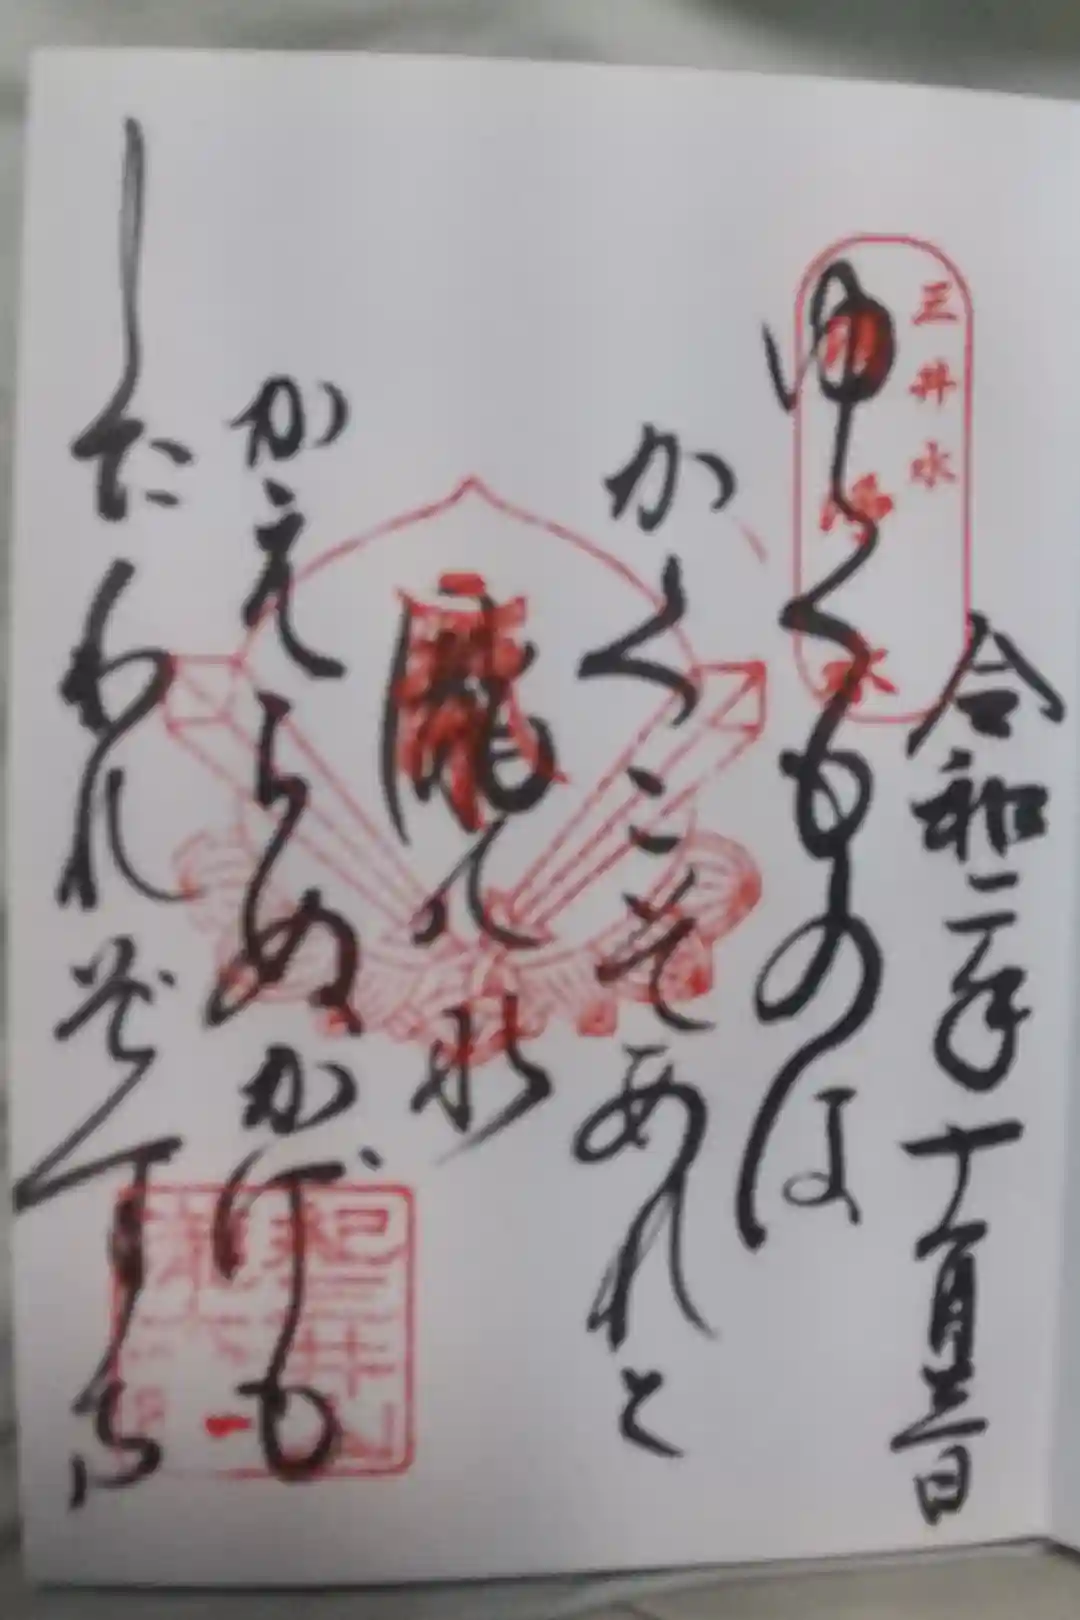 三井水
令和二年十一月三日
ゆくものは
かくこそあれと
瀧の水
かえらぬかげも
したわれぞする